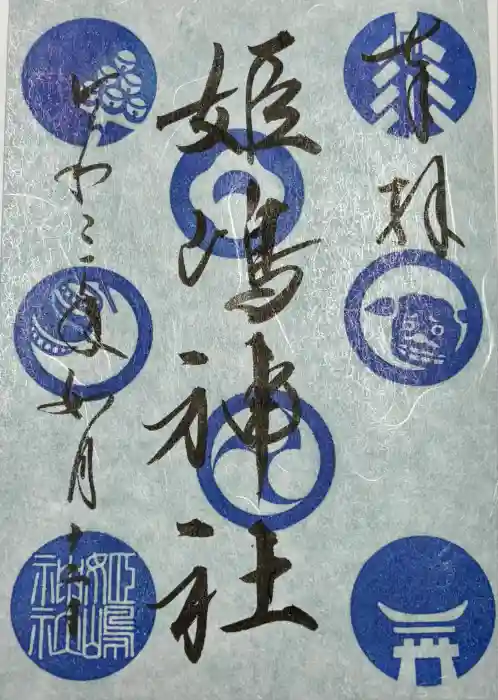 奉拝
姫嶋神社
令和三年如月十二日
姫嶋
神社